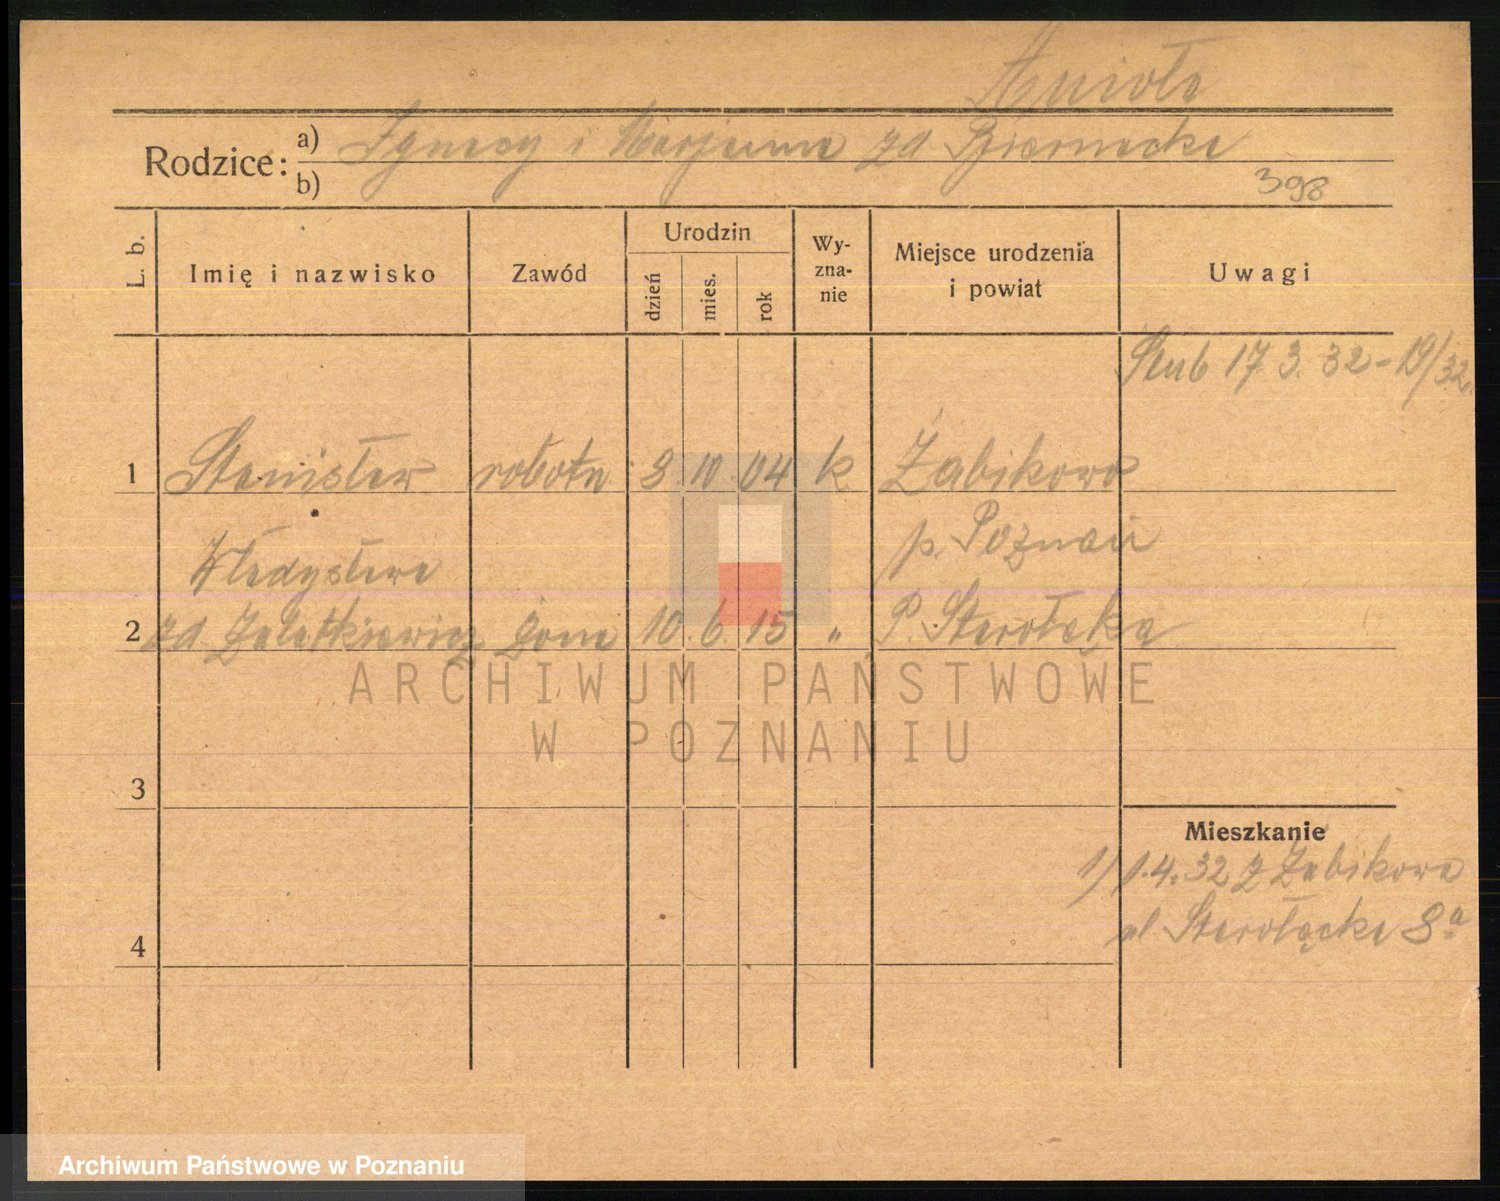 Anioła
Rodzice: a) Ignacy i Marjanna zd Biernacka
b)
398
L. b. Imię i nazwisko Zawód Urodzin dzień mies. rok Wy-zna-nie Miejsce urodzenia i powiat Uwagi
Ślub 17 3. 32 - 19/32.
1 Stanisław robotn 8. 10. 04 k Żabikowo
p. Poznań
Władysława
2 zd. żona 10. 6. 15 " P. Starołęka
ARCHIWUM PAŃSTWOWE
W POZNANIU
3
Mieszkanie
1) 1.4.32 z Żabikowa
ul Starołęcka 8a
4
Archiwum Państwowe w Poznaniu